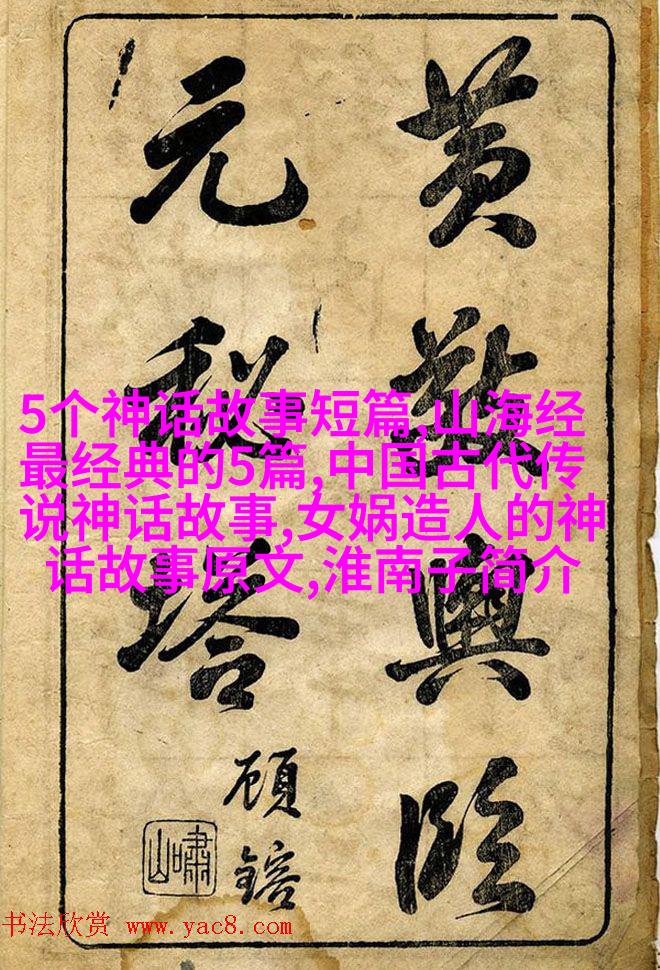 黄敬輿臨
元秘塔
顧鎔
嘯山
5个神话故事短篇,山海经
最经典的5篇,中国古代传
说神话故事,女娲造人的神
话故事原文,淮南子简介
书法欣赏 www.yac8.com